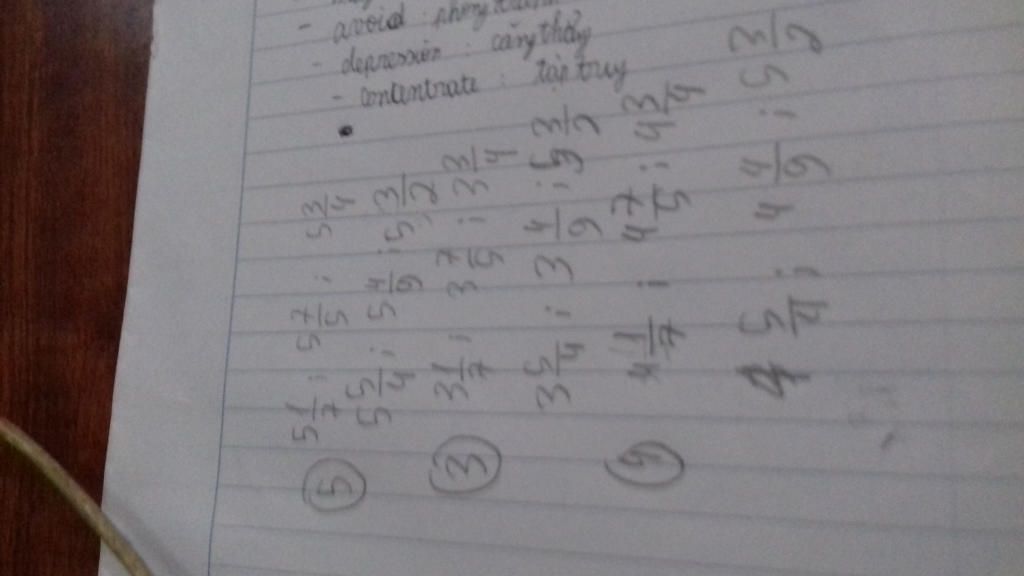 - avoid :
- depression : căng thẳng
- contentrate : tập truy
⑤ 5 1/7 ; 5 7/5 ; 5 3/4
5 5/4 ; 5 4/9 ; 5 3/2
③ 3 1/7 ; 3 7/5 ; 3 3/4
3 5/4 ; 3 4/9 ; 3/2
4 1/7 ; 4 7/5 ; 4 3/4
4 5/4 ; 4 4/9 ; 5 3/2